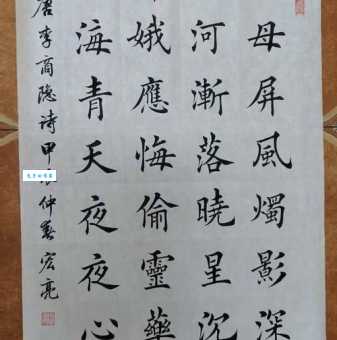 母屏風燭影深
河漸落曉星沉
娥應悔偷靈藥
海青天夜夜心
唐李商隐詩甲 仲春宏亮